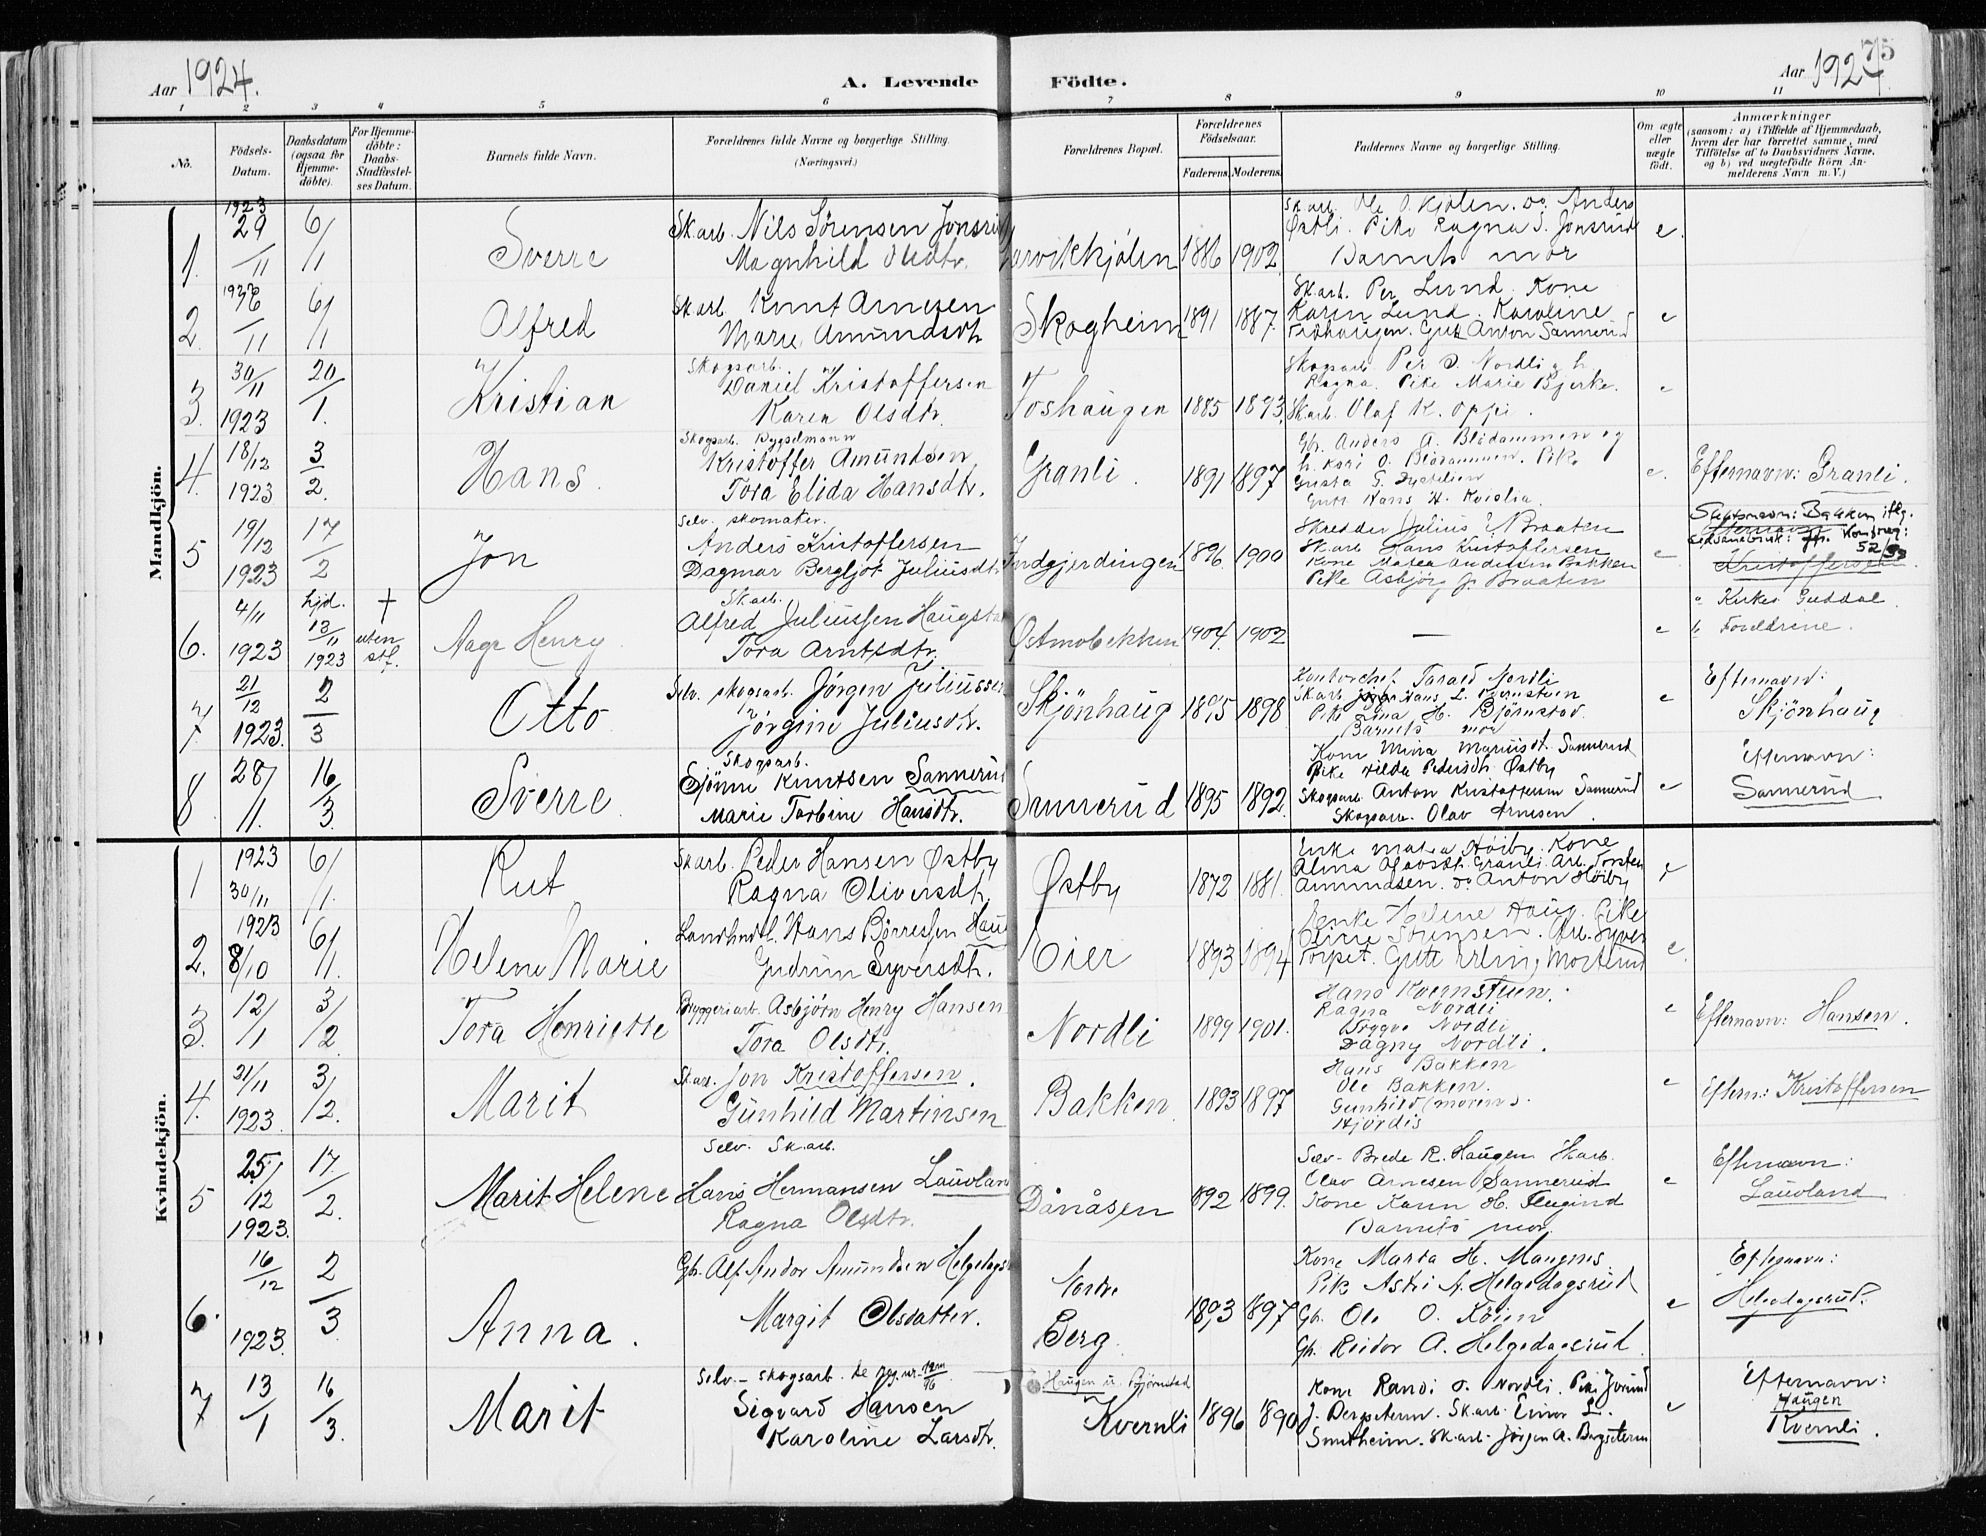 Aar 1924.
A. Levende Födte.
Aar 1924.
75
1 2 3 4 5 6 7 8 9 10 11
No.
Födsels-Datum.
Daabsdatum (ogsaa for Hjemme-döbte).
For Hjemme-döbte: Daabs-Stadfæstel-ses Datum.
Barnets fulde Navn.
Forældrenes fulde Navne og borgerlige Stilling.
(Næringsvei.)
Forældrenes Bopæl.
Forældrenes Födselsaar.
Faderens. Moderens.
Faddernes Navne og borgerlige Stilling.
Om ægte eller uægte födt.
Anmærkninger
(saasom: a) i Tilfælde af Hjemmedaab,
hvem der har forrettet samme, med
Tilföielse af to Daabsvidners Navne.
og b) ved uægtefödte Börn An-
melderens Navn m. V.)
Mandkjön.
1. 1923 29/11 6/1 Sverre Skarb. Nils Sörensen Jonsrud
Magnhild Olsdtr. 1886 1902
Skarb. Ole O. Kjölen. do Anders
Østli. Pike Ragna S. Jonsrud
Barnets mor e.
2. 6/1 Alfred Skarb. Knut Arnesen
Marie Amundsdtr. Skogheim 1891 1887.
Skarb. Per Lund. Kone
Karen Lund. Karoline
Gutt Anton Sannerud e
3. 30/11 1923 20/1. Kristian Skogsarb.
Daniel Kristoffersen
Karen Olsdtr. Toshaugen 1885 1893.
Skogsarb. Per O. Nordli o. h.
Ragna. Pike Marie Bjerke.
Skarb. Olaf K. Oppi. e
4. 18/12 1923 3/2. Hans. Skogsarb. Bygselmann
Kristoffer Amundsen
Tora Elida Hansdtr. Granli. 1891 1897
Gbr. Anders A. Blödammen og
h. Kari O. Blödammen. Pike
Gutt Hans H. Kvislia. e. Efternavn: Granli.
5 19/12 1923 17/2 Jon Selv. skomaker.
Anders Kristoffersen
Dagmar Bergljot Juliusdtr. Indgjerdingen 1896 1900
Skredder Julius Braaten
Skarb. Hans Kristoffersen
Kone Matea Andersen Bakken
Pike Asbjörg J. Braaten e
Slektsnavn: Bakken iflg.
52/53
Kristoffersen
6. 4/11 1923 hjd. 13/11 1923 † uten stf. Aage Henry Skarb.
Alfred Juliussen Haugstad
Tora Arntsdtr. Østmobekken 1904. 1902 — e
Foreldrene.
7. 21/12 1923. 2/3 Otto Selv. skogsarb. Jörgen Juliussen
Jörgine Juliusdtr. Skjönhaug 1895 1898
Nordli
Pike Lina H. Björnstad.
Barnets mor e Efternavn:
Skjönhaug
8 28/11. 16/3. Sverre. Skogsarb.
Sjönne Knutsen Sannerud
Marie Torbine Hansdtr. Sannerud 1895 1892.
Kone Mina Mariusdt. Sannerud
Pike Hilda Pedersdtr. Østby
Skogsarb. Anton Kristoffersen Sannerud
Skogsarb. Olav Arnesen. e Efternavn:
Sannerud
Kvindekjön.
1 1923 30/11 6/1. Rut Skarb. Peder Hansen Østby
Ragna Oliversdtr. Østby 1872 1881.
Enke Matea Höiby. Kone
Alma Granli Arb. Torsten
Ammundsen. do Anton Höiby e
2. 1923 8/10 6/1. Helene Marie Landhndl. Hans Börresen Haug
Gudrun Syversdtr. Eier 1893 1894
Enke Helene Haug. Pike
Oline Sörensen. Arb. Syver
Torpet. Gutt Erling Mortlund e.
3. 12/1 3/2. Tora Henriette Bryggeriarb. Asbjörn Henry Hansen
Tora Olsdtr. Nordli 1899 1901.
Hans Kvernstuen.
Ragna Nordli
Trygve Nordli
Dagny Nordli. e Efternavn: Hansen.
4. 21/11 1923. 3/2. Marit Skarb. Jon Kristoffersen.
Gunhild Martinsen Bakken 1893 1897
Hans Bakken
Ole Bakken.
Gunhild (moren).
Hjördis e Eftern: Kristoffersen
5 25/12 1923. 17/2. Marit Helene Selv. Skarb.
Hans Hermansen Lauvland
Ragna Olsdtr. Dånåsen 892 1899.
Selv- Brede R. Haugen Skarb.
Olav Arnesen Sannerud
Kone Karin H. Flugind
Barnets mor e Efternavn:
Lauvland
6. 16/12 1923. 2/3. Anna. Gbr. Alf Andor Amundsen Helgedagsrud
Margit Olsdatter. Berg. 1893 1897
Kone Marta H. Maugnes.
Pike Astri A. Helgedagsrud
Gbr. Ole O. Köien
Gbr. Reidar A. Helgedagsrud. e Efternavn:
Helgedagsrud.
7 13/1 16/3. Marit Selv.- skogsarb.
Sigvard Hansen
Karoline Larsdtr. Haugen u. Björnstad
Kvernli 1896 890
Kone Randi O. Nordli. Pike Jorund
J. Bergseteren. Skarb. Einar L.
Smedheim. Skarb. Jörgen A. Bergseteren e Efternavn:
Haugen
Kvernli.